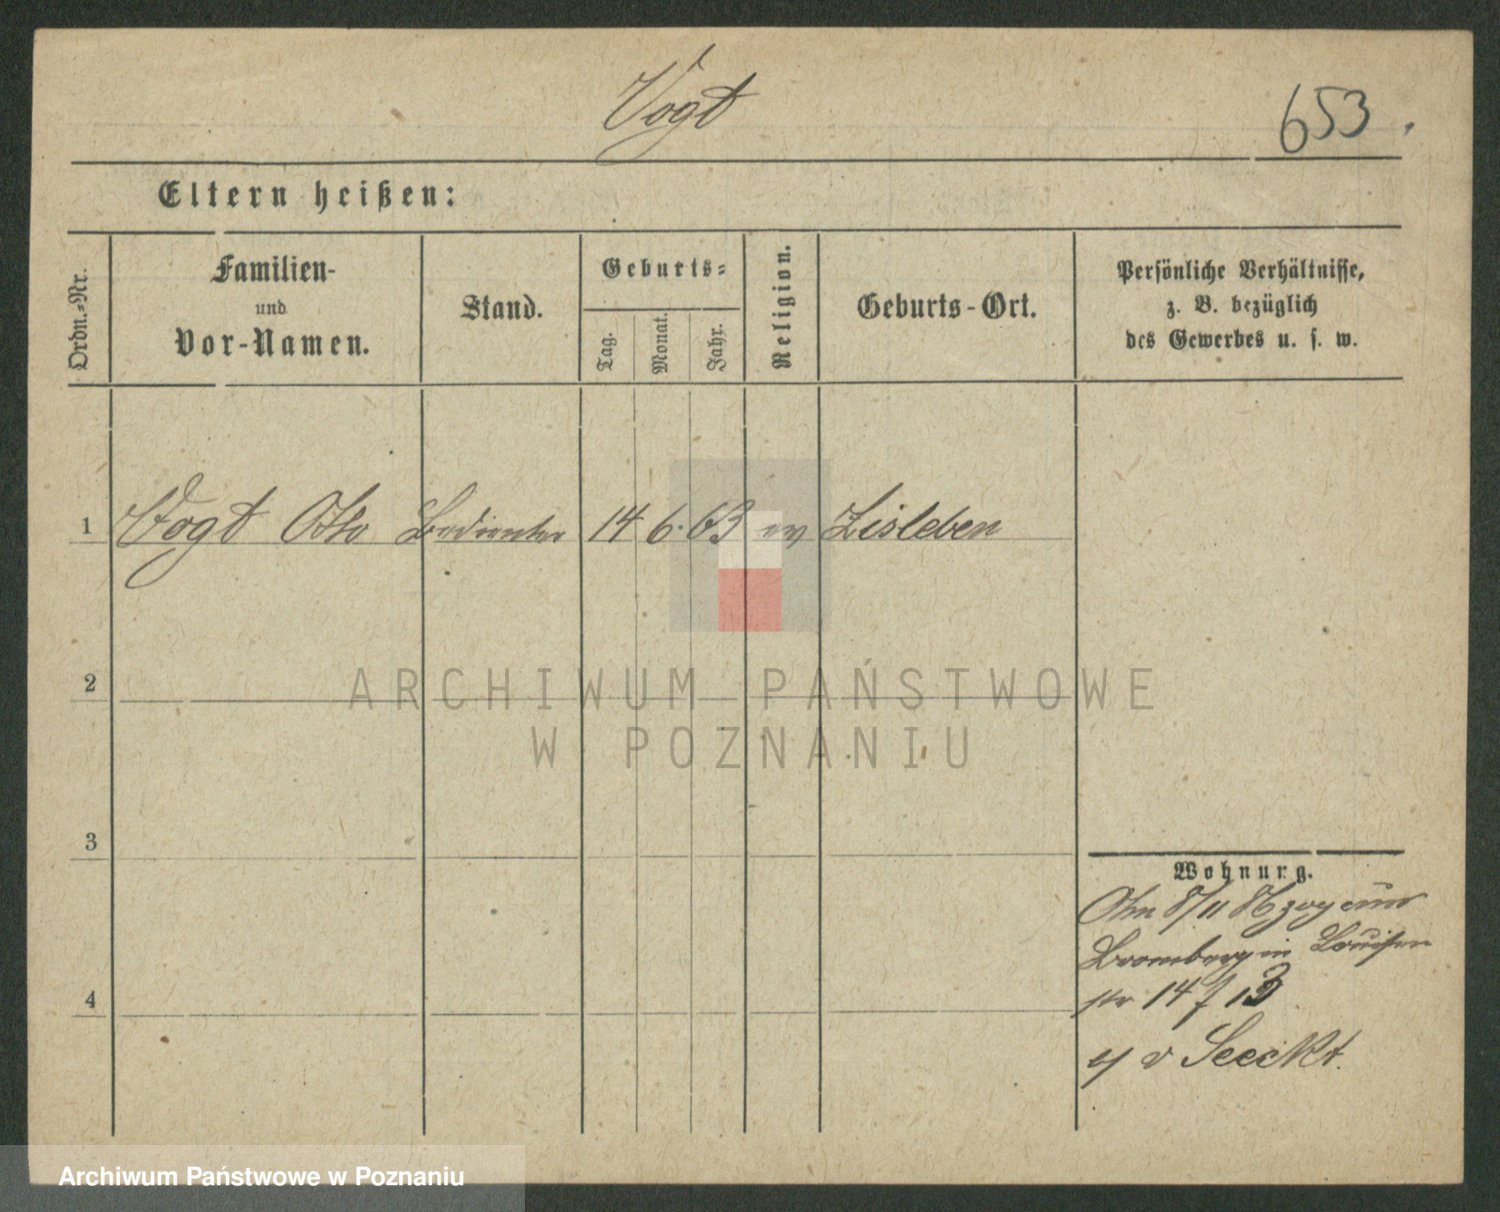 Vogt
653.
Eltern heißen:
Ordn.-Nr.
Familien-
und
Vor-Namen.
Stand.
Geburts-
Tag.
Monat.
Jahr.
Religion.
Geburts-Ort.
Persönliche Verhältnisse,
z. B. bezüglich
des Gewerbes u. s. w.
1 Vogt Otto Bedienter 14 6. 63 ev Eisleben
2
3
4
Wohnung.
8/11 86 zog
Bromberg in Louisen
str 14
v Seeckt.
ARCHIWUM PAŃSTWOWE
W POZNANIU
Archiwum Państwowe w Poznaniu